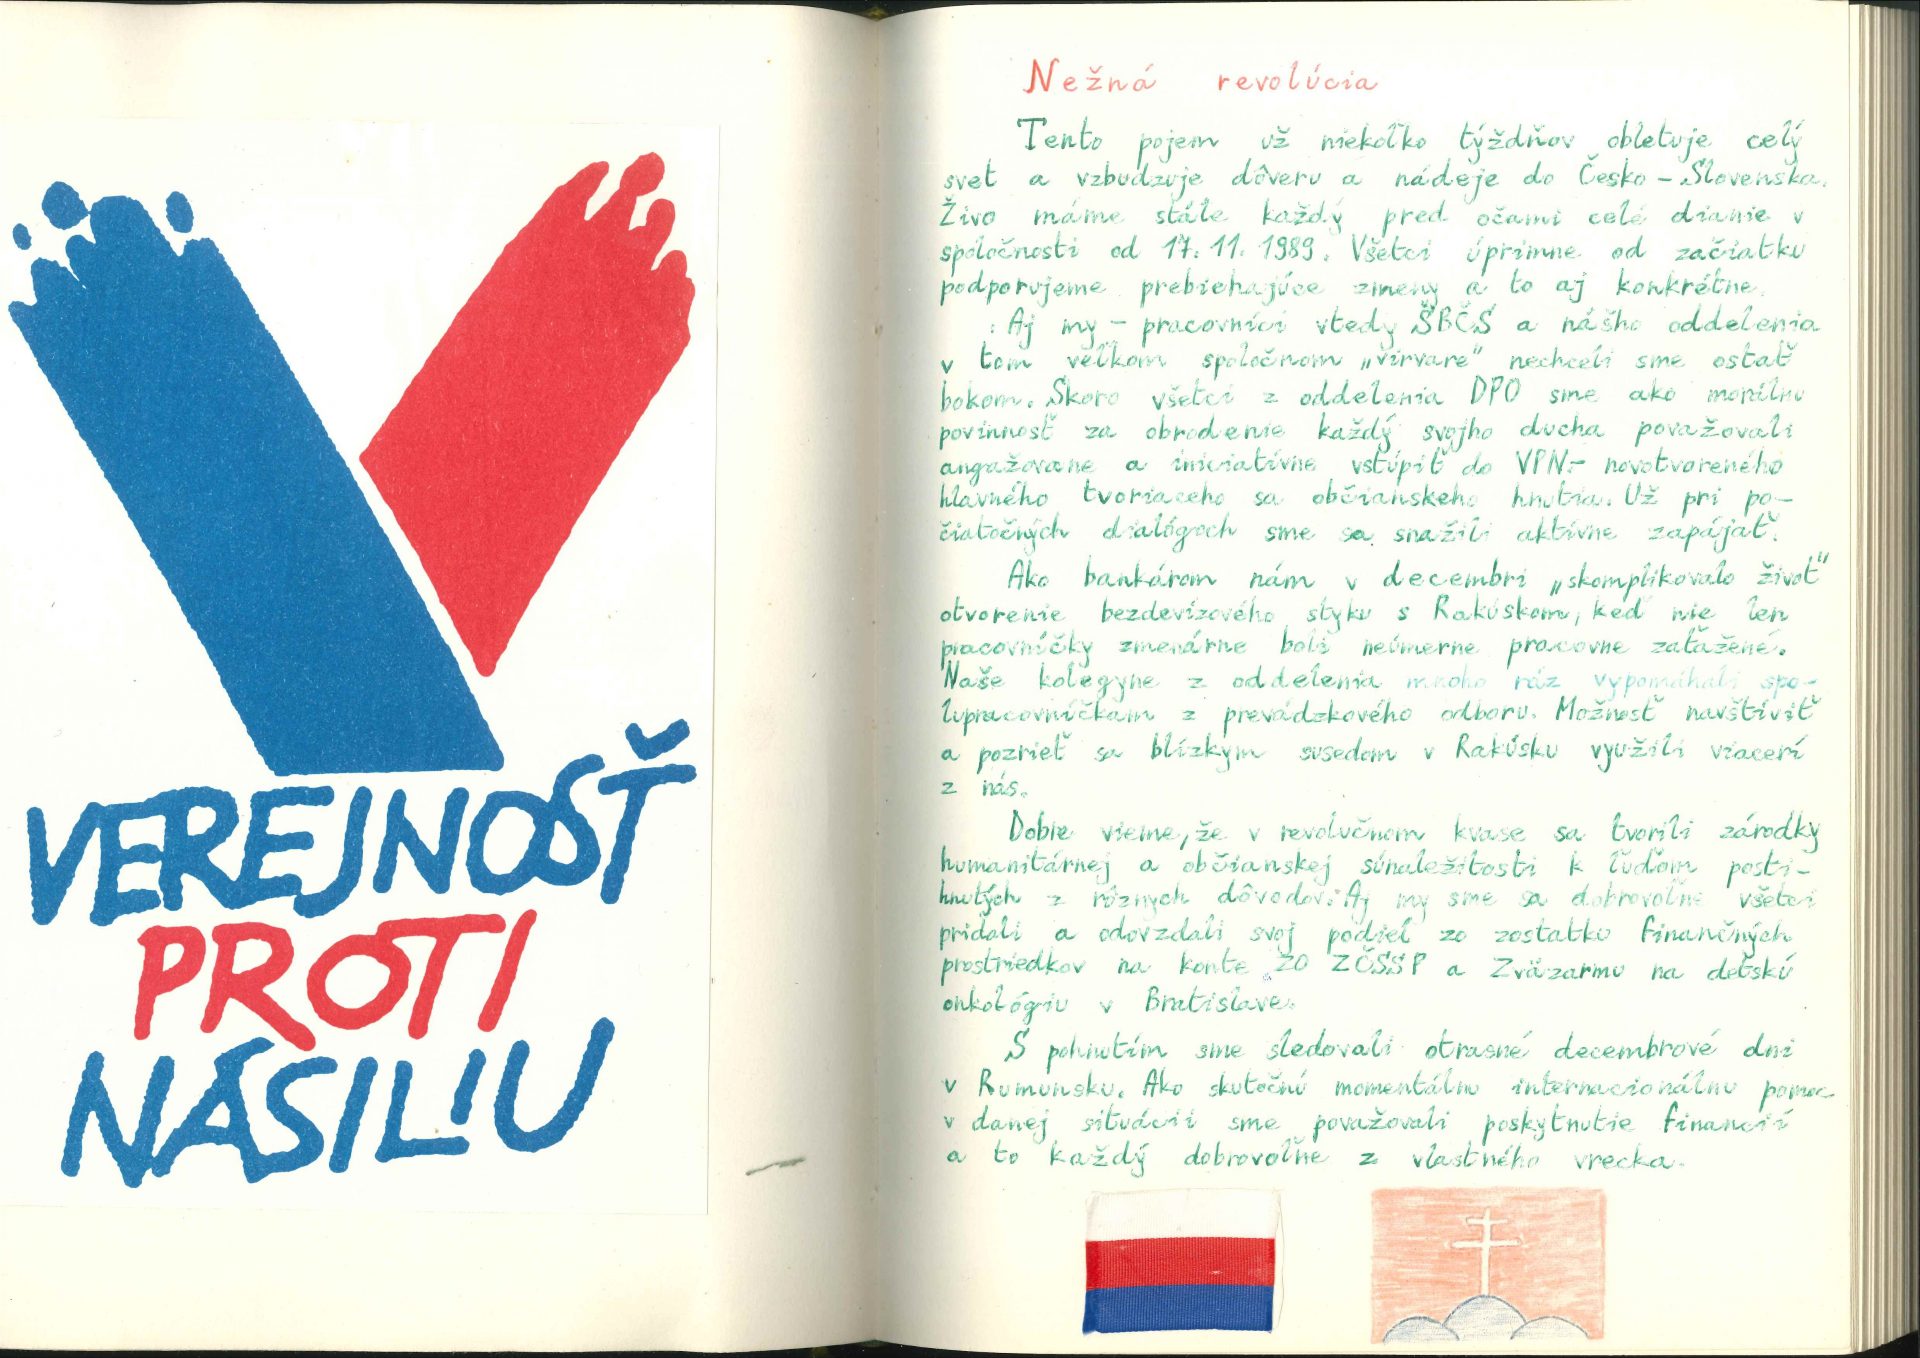 VEREJNOSŤ
PROTI
NÁSILIU
Nežná revolúcia
Tento pojem už niekoľko týždňov obletuje celý
svet a vzbudzuje dôveru a nádeje do Česko-Slovenska.
Živo máme stále každý pred očami celé dianie v
spoločnosti od 17. 11. 1989. Všetci úprimne od začiatku
podporujeme prebiehajúce zmeny a to aj konkrétne.
Aj my - pracovníci vtedy ŠBČS a nášho oddelenia
v tom veľkom spoločnom „virvare" nechceli sme ostať
bokom. Skoro všetci z oddelenia DPO sme ako morálnu
povinnosť za obrodenie každý svojho ducha považovali
angažovane a iniciatívne vstúpiť do VPN - novotvoreného
hlavného tvoriaceho sa občianskeho hnutia. Už pri po-
čiatočných dialógoch sme sa snažili aktívne zapájať.
Ako bankárom nám v decembri „skomplikovalo život"
otvorenie bezdevízového styku s Rakúskom, keď nie len
pracovníčky zmenárne boli neúmerne pracovne zaťažené.
Naše kolegyne z oddelenia mnoho ráz vypomáhali spo-
lupracovníčkam z prevádzkového odboru. Možnosť navštíviť
a pozrieť sa blízkym susedom v Rakúsku využili viacerí
z nás.
Dobre vieme, že v revolučnom kvase sa tvorili zárodky
humanitárnej a občianskej súnaležitosti k ľuďom posti-
hnutých z rôznych dôvodov. Aj my sme sa dobrovoľne všetci
pridali a odovzdali svoj podiel zo zostatku finančných
prostriedkov na konte ZO ZČSSP a Zväzarmu na detskú
onkológiu v Bratislave.
S pohnutím sme sledovali otrasné decembrové dni
v Rumunsku. Ako skutočnú momentálnu internacionálnu pomoc
v danej situácii sme považovali poskytnutie financií
a to každý dobrovoľne z vlastného vrecka.